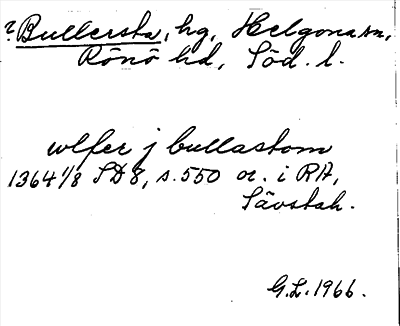 ? Bullersta, hg, Helgona sn,
Rönö hd, Söd. l.
ulfer j bullastom
1364 1/8 SD 8, s. 550 or. i RA,
Sävstah.
G.L. 1966.